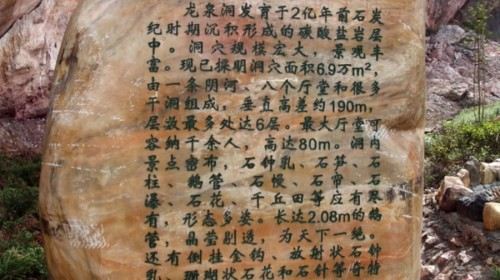 龙泉洞发育于2亿年前石炭
纪时期沉积形成的碳酸盐岩层
中。洞穴规模宏大，景观丰
富。现已探明洞穴面积6.9万m²，
由一条阴河、八个厅堂和很多
干洞组成，垂直高差约190m，
层数最多处达6层。最大厅堂可
容纳千余人，高达80m。洞内
景点密布，石钟乳、石笋、石
柱、鹅管、石幔、石帘、石
瀑、石花、千丘田等应有尽
有，形态多姿。长达2.08m的鹅
管，晶莹剔透，为天下一绝。
还有倒挂金钩、放射状石钟
乳、珊瑚状石花和石针等奇特